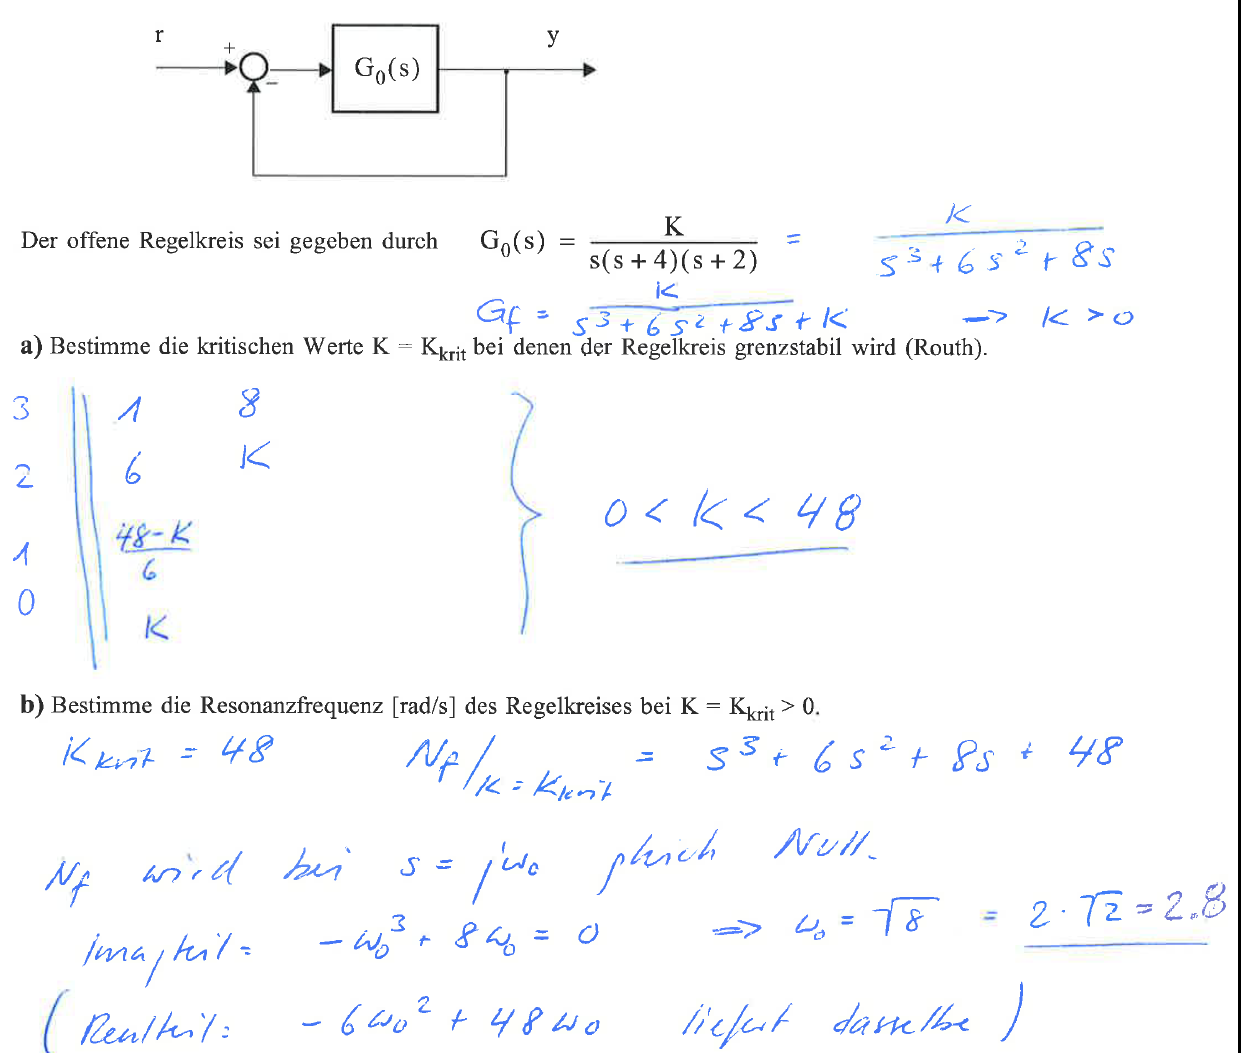 r + − G₀(s) y
Der offene Regelkreis sei gegeben durch G₀(s) = K / (s(s + 4)(s + 2)) = K / (s³ + 6s² + 8s)
Gf = K / (s³ + 6s² + 8s + K) → K > 0
a) Bestimme die kritischen Werte K = Kkrit bei denen der Regelkreis grenzstabil wird (Routh).
3 1 8
2 6 K
1 (48-K)/6
0 K
0 < K < 48
b) Bestimme die Resonanzfrequenz [rad/s] des Regelkreises bei K = Kkrit > 0.
Kkrit = 48 Nf/K=Kkrit = s³ + 6s² + 8s + 48
Nf wird bei s = jω₀ gleich Null.
Imagteil: −ω₀³ + 8ω₀ = 0 ⇒ ω₀ = √8 = 2·√2 = 2.8
(Realteil: −6ω₀² + 48ω₀ liefert dasselbe)